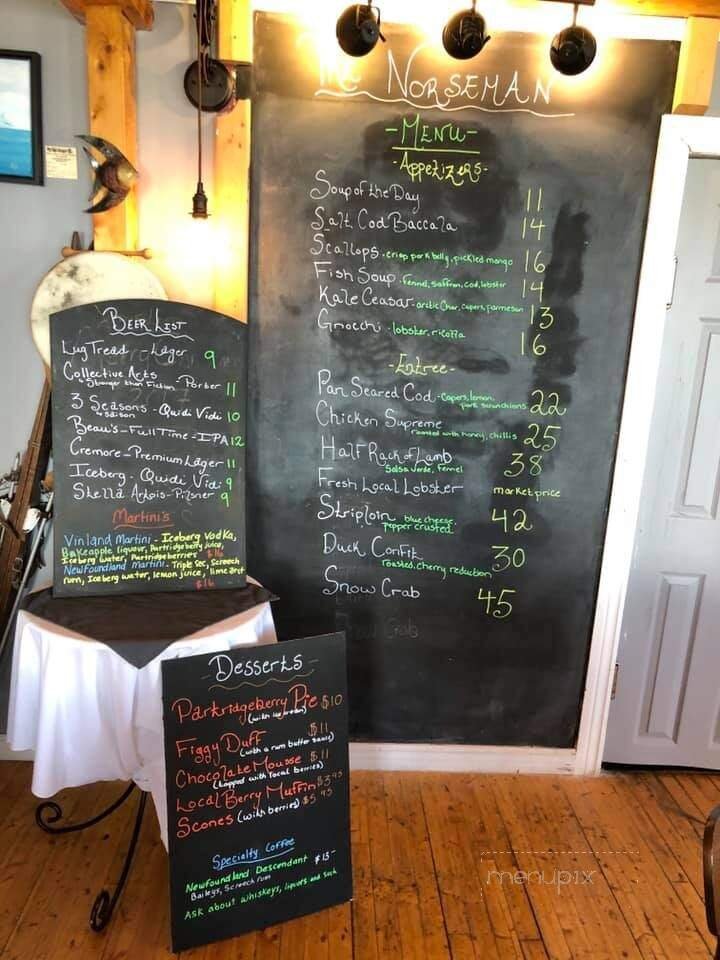 The NORSEMAN
-MENU-
-Appetizers-
Soup of the Day 11
Salt Cod Baccala 14
Scallops - crisp pork belly, pickled mango 16
Fish Soup - fennel, saffron, cod, lobster 14
Kale Ceasar - arctic Char, capers, parmesan 13
Gnocchi - lobster, ricotta 16
-Entree-
Pan Seared Cod - Capers, lemon,
pork scrunchions 22
Chicken Supreme
roasted with honey, chillis 25
Half Rack of Lamb 38
Salsa verde, fennel
Fresh Local Lobster market price
Striploin blue cheese, 42
pepper crusted
Duck Confit 30
roasted cherry reduction
Snow Crab 45
BEER LIST
Lug Tread - Lager 9
Collective Arts
Stranger than Fiction - Porter 11
3 Seasons - Quidi Vidi 10
Beau's - Full Time - IPA 12
Cremore - Premium Lager 11
Iceberg - Quidi Vidi 9
Stella Artois - Pilsner 9
Martini's
Vinland Martini - Iceberg Vodka,
Bakeapple liqueur, Partridgeberry juice,
Iceberg water, Partridgeberries $16
Newfoundland Martini - Triple sec, Screech
rum, Iceberg water, lemon juice, lime zest
$16
-Desserts-
Partridgeberry Pie $10
(with ice cream)
Figgy Duff $11
(with a rum butter sauce)
Chocolate Mousse $11
(topped with local berries)
Local Berry Muffin $3.95
Scones (with berries) $5.95
Specialty Coffee
Newfoundland Descendant $13-
Baileys, Screech rum
Ask about whiskeys, liquors and such
menupix